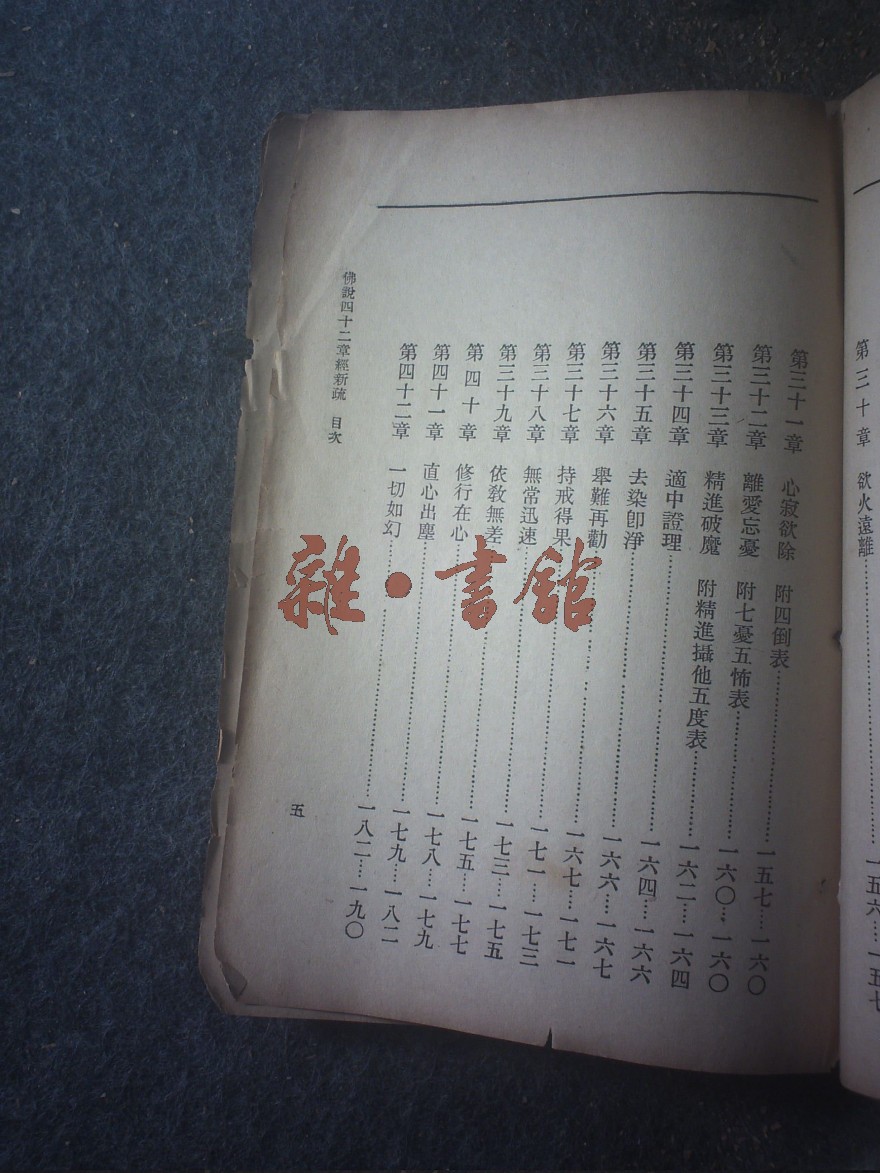 第三十章　欲火遠離…………一五六…一五七
第三十一章　心寂欲除　附四倒表…………一五七…一六〇
第三十二章　離愛忘憂　附七憂五怖表…………一六〇…一六〇
第三十三章　精進破魔　附精進攝他五度表…………一六二…一六四
第三十四章　適中證理…………一六四…一六六
第三十五章　去染卽淨…………一六六…一六七
第三十六章　舉難再勸…………一六七…一七一
第三十七章　持戒得果…………一七一…一七三
第三十八章　無常迅速…………一七三…一七五
第三十九章　依敎無差…………一七五…一七七
第四十章　修行在心…………一七八…一七九
第四十一章　直心出塵…………一七九…一八二
第四十二章　一切如幻…………一八二…一九〇
佛說四十二章經新疏　目次
五
雜·書館